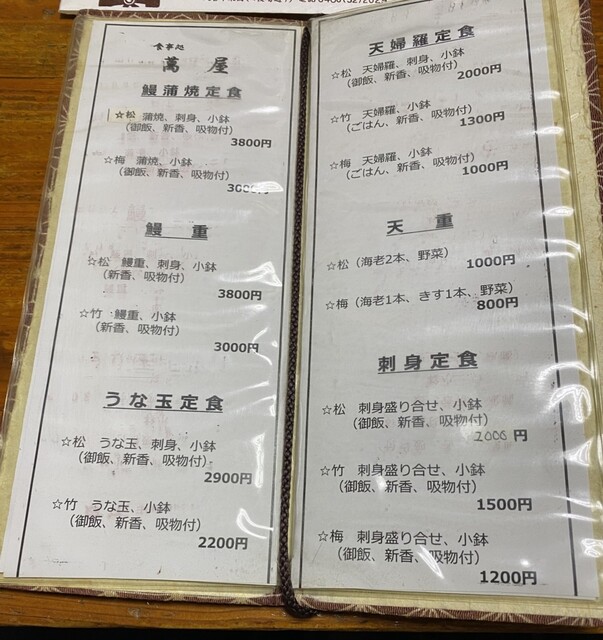 食事処
萬屋
鰻蒲焼定食
☆松 蒲焼、刺身、小鉢
(御飯、新香、吸物付)
3800円
☆梅 蒲焼、小鉢
(御飯、新香、吸物付)
3000円
鰻重
☆松 鰻重、刺身、小鉢
(新香、吸物付)
3800円
☆竹 鰻重、小鉢
(新香、吸物付)
3000円
うな玉定食
☆松 うな玉、刺身、小鉢
(御飯、新香、吸物付)
2900円
☆竹 うな玉、小鉢
(御飯、新香、吸物付)
2200円
天婦羅定食
☆松 天婦羅、刺身、小鉢
(御飯、新香、吸物付)
2000円
☆竹 天婦羅、小鉢
(ごはん、新香、吸物付)
1300円
☆梅 天婦羅、小鉢
(ごはん、新香、吸物付)
1000円
天重
☆松(海老2本、野菜)
1000円
☆梅(海老1本、きす1本、野菜)
800円
刺身定食
☆松 刺身盛り合せ、小鉢
(御飯、新香、吸物付)
2000円
☆竹 刺身盛り合せ、小鉢
(御飯、新香、吸物付)
1500円
☆梅 刺身盛り合せ、小鉢
(御飯、新香、吸物付)
1200円